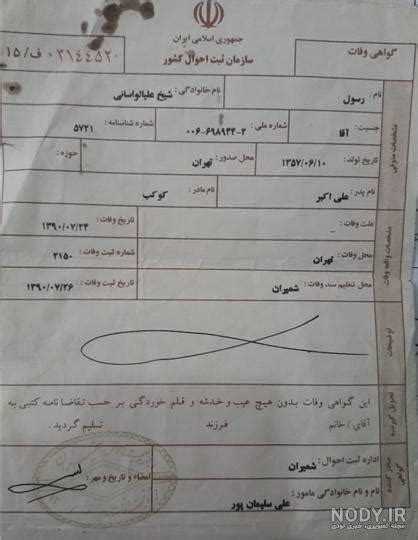 جمهوری اسلامی ایران
سازمان ثبت احوال کشور
گواهی وفات
۰۳۱۴۴۵۲ ف/۱۵
نام : رسول
نام خانوادگی : شیخ علیالواسانی
جنسیت : آقا
شماره ملی : ۰۰۶-۶۹۸۹۴۴-۲
شماره شناسنامه : ۵۷۲۱
تاریخ تولد : ۱۳۵۷/۰۶/۱۰
محل صدور : تهران
حوزه :
نام پدر : علی اکبر
نام مادر : کوکب
مشخصات متوفی
علت وفات : -
تاریخ وفات : ۱۳۹۰/۰۷/۲۴
محل وفات : تهران
شماره ثبت وفات : ۲۱۵۰
محل تنظیم سند وفات : شمیران
تاریخ ثبت وفات : ۱۳۹۰/۰۷/۲۶
مشخصات واقعه وفات
توضیحات
این گواهی وفات بدون هیچ عیب و خدشه و قلم خوردگی بر حسب تقاضا نامه کتبی به
آقای / خانم فرزند تسلیم گردید .
تحویل گیرنده
اداره ثبت احوال : شمیران
امضاء و تاریخ و مهر :
نام و نام خانوادگی مامور :
علی سلیمان پور
صادر کننده گواهی
NODY.IR
مجله تصویری، خبری نودی